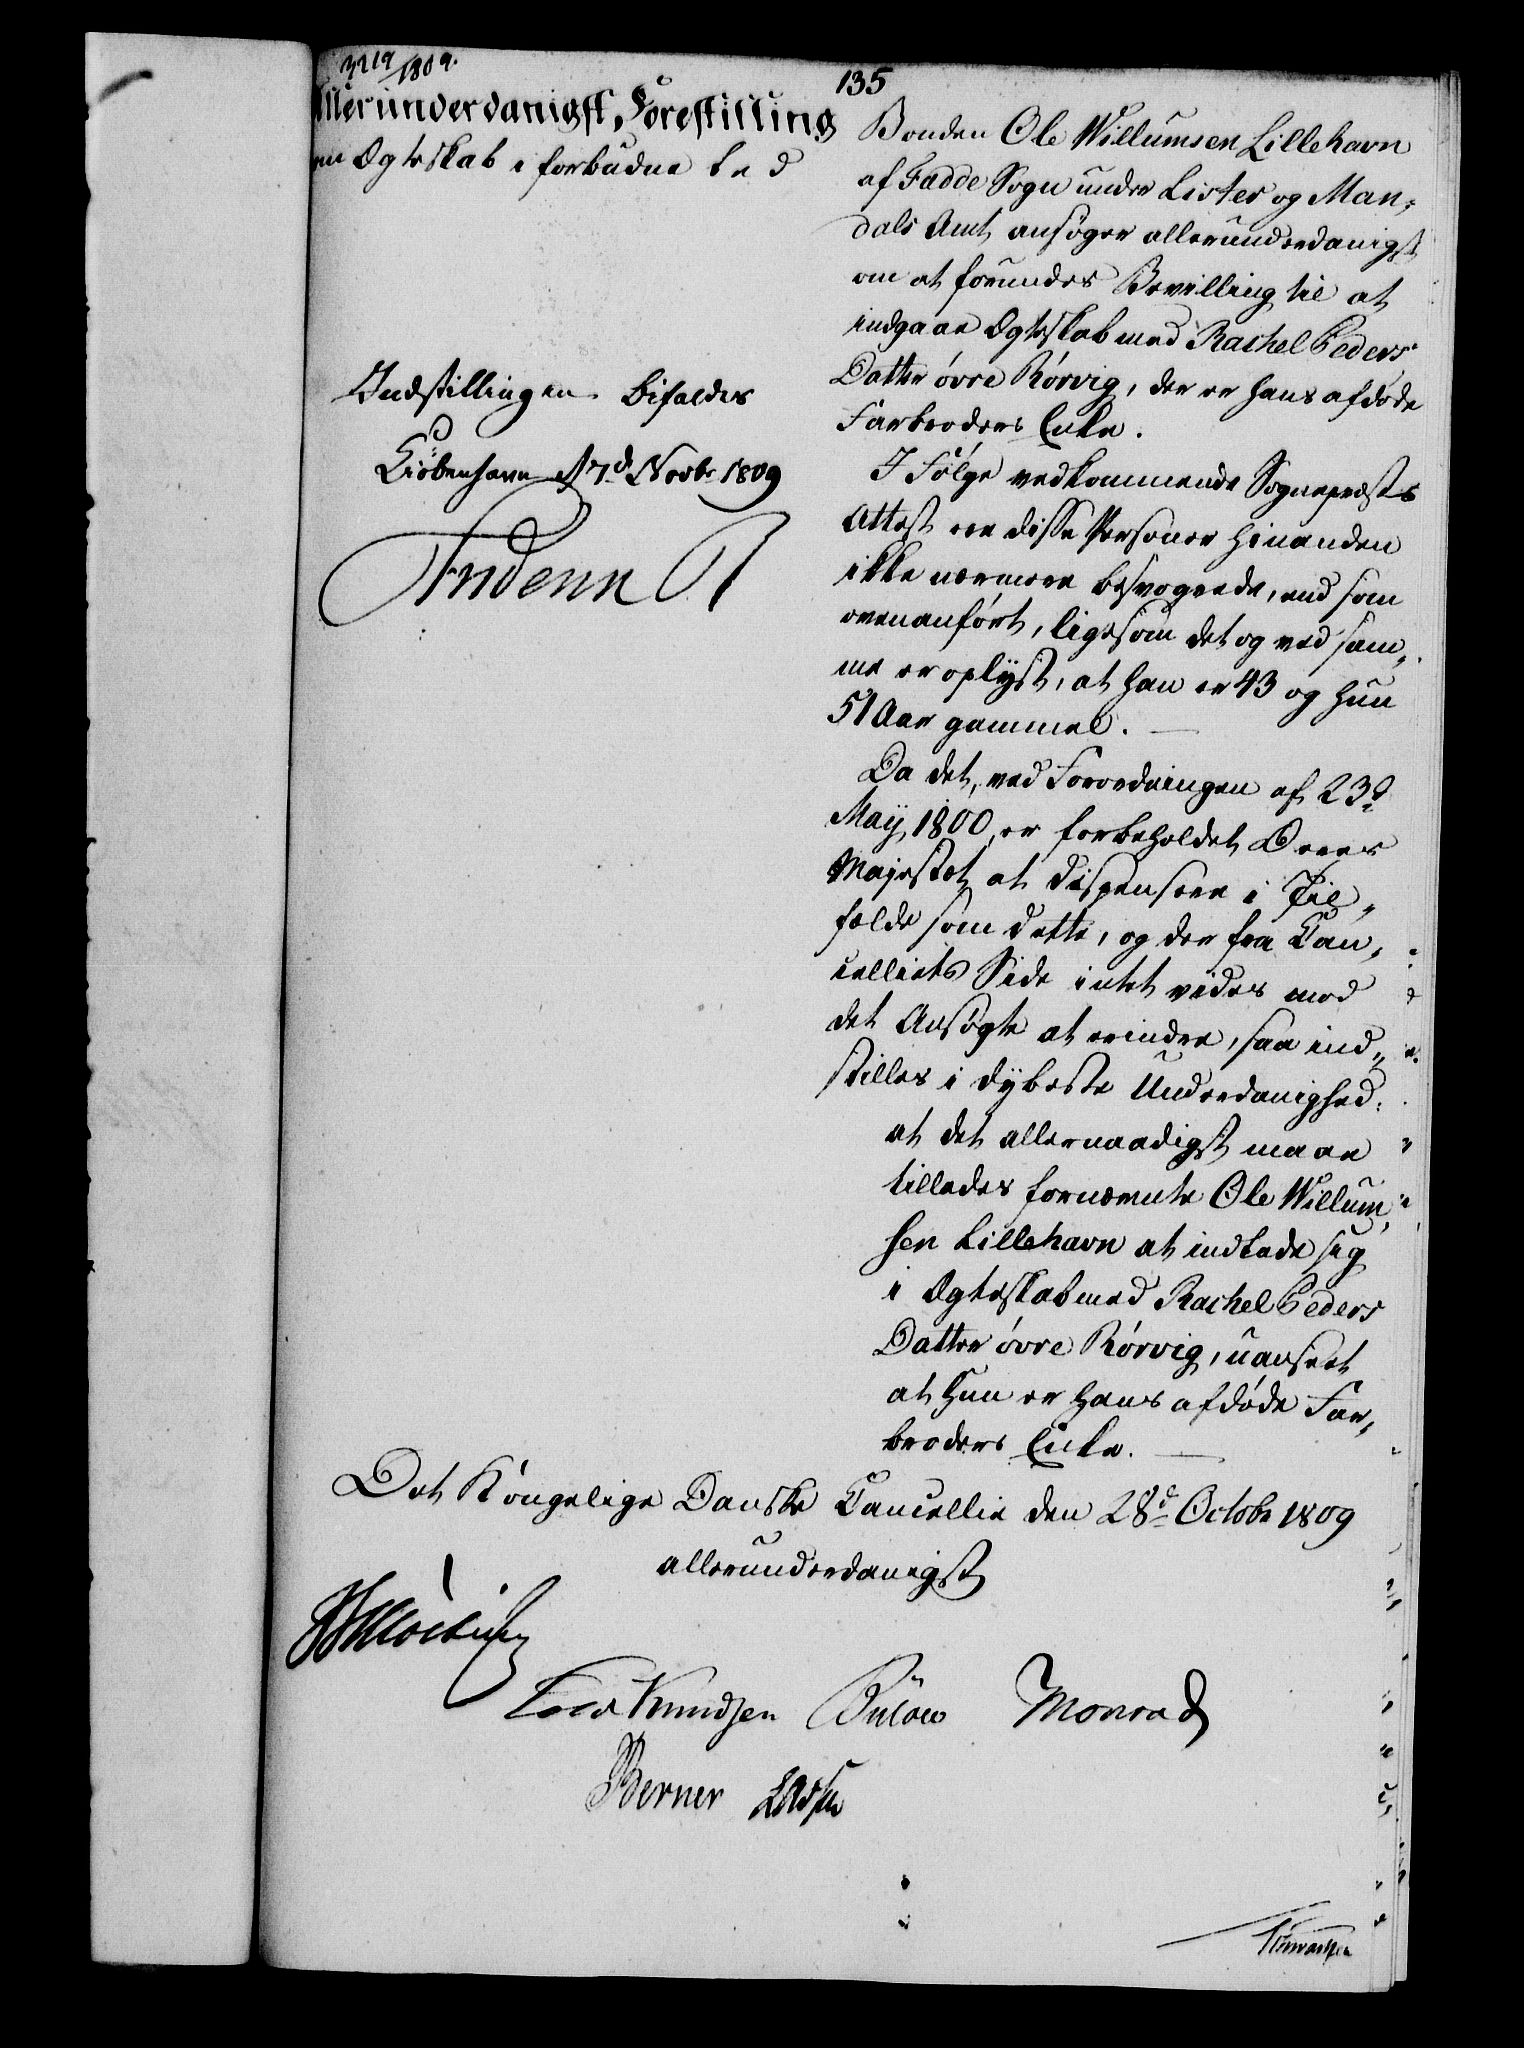 3219/1809.
135
Allerunderdanigst Forestilling
om Ægteskab i forbudne Led
Bonden Ole Willumsen Lillehavn
af Fædde Sogn under Lister og Man,,
dals Amt, ansøger allerunderdanigst
om at forundes Bevilling til at
indgaae Ægteskab med Rachel Peders
Datter övre Rörvig, der er hans afdöde
Farbroders Enke.
I Fölge vedkommende Sognepræsts
Attest ere disse Personer hinanden
ikke nærmere besvogrede, end som
ovenanfört, ligesom det og ved sam,,
me er oplyst, at han er 43 og hun
51 Aar gammel.
Da det, ved Forordningen af 23d
Maij 1800, er forbeholdet Deres
Majestæt at dispensere i Til,,
fælde som dette, og der fra Can,,
celliets Side intet vides mod
det Ansøgte at erindre, saa ind,,
stilles i dybeste Underdanighed:
at det allernaadigst maae
tillades fornævnte Ole Willum,,
sen Lillehavn at indlade sig
i Ægteskab med Rachel Peders
Datter övre Rörvig, uanseet
at hun er hans afdöde Far,,
broders Enke.
Indstillingen bifaldes
Kiöbenhavn d 7d Novbr 1809
Frederik R
Det Kongelige Danske Cancellie den 28d Octobr 1809
allerunderdanigst
Knudsen Bülow Monrad
Berner Lassen